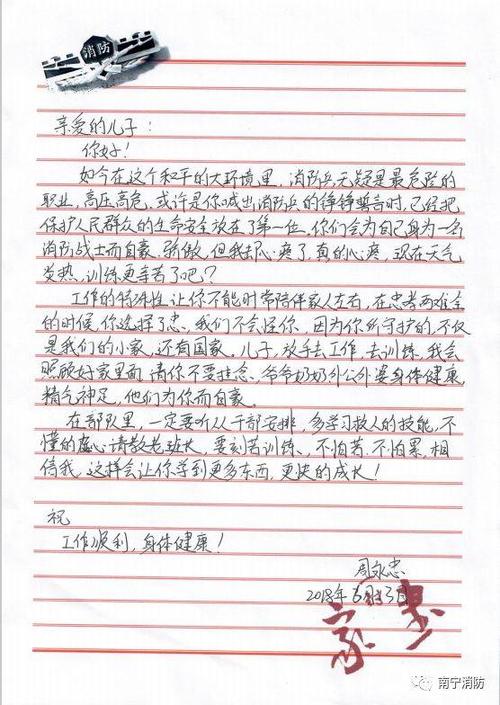 消防
亲爱的儿子：
你好！
如今在这个和平的大环境里，消防兵无疑是最危险的
职业，高压高危，或许是你喊出消防兵的铮铮誓言时，已经把
保护人民群众的生命安全放在了第一位，你们会为自己身为一名
消防战士而自豪、骄傲，但我却心疼了，真的心疼，现在天气
炎热，训练更辛苦了吧？
工作的特殊性让你不能时常陪伴家人左右，在忠孝两难全
的时候，你选择了忠、我们不会怪你、因为你所守护的，不仅
是我们的小家，还有国家。儿子，放手去工作，去训练，我会
照顾好家里面，请你不要挂念、爷爷奶奶外公外婆身体健康，
精气神足，他们为你而自豪。
在部队里，一定要听从干部安排，多学习救人的技能，不
懂的虚心请教老班长，要刻苦训练、不怕苦、不怕累，相
信我，这样会让你学到更多东西，更快的成长！
祝
工作顺利，身体健康！
周永忠
2018年6月3日
家书
南宁消防